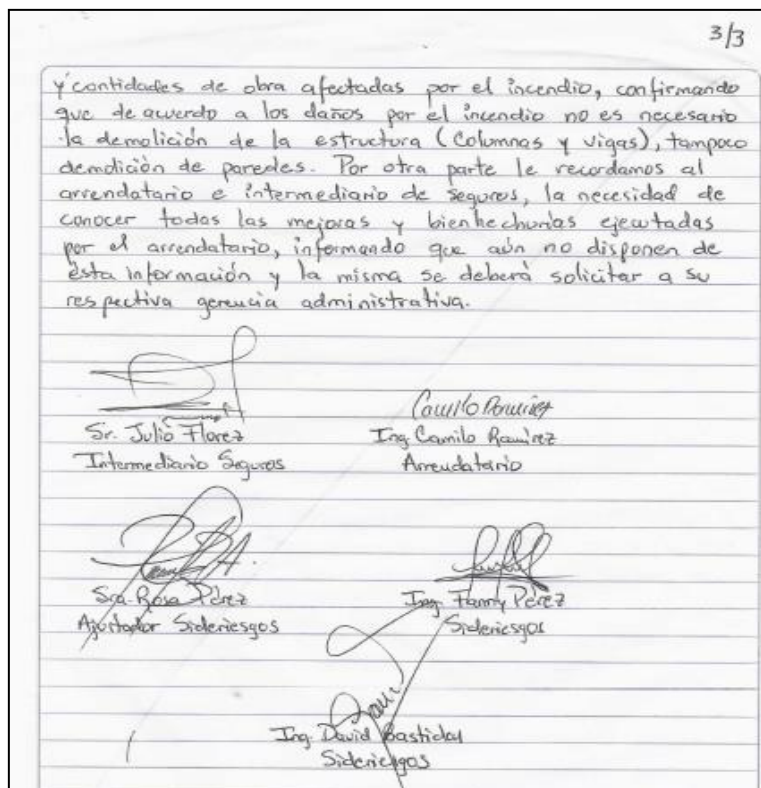 3/3
y cantidades de obra afectadas por el incendio, confirmando
que de acuerdo a los daños por el incendio no es necesario
la demolición de la estructura (Columnas y vigas), tampoco
demolición de paredes. Por otra parte le recordamos al
arrendatario e intermediario de seguros, la necesidad de
conocer todas las mejoras y bienhechurías ejecutadas
por el arrendatario, informando que aún no disponen de
ésta información y la misma se deberá solicitar a su
respectiva gerencia administrativa.
Camilo Ramirez
Sr. Julio Florez
Ing Camilo Ramirez
Intermediario Seguros
Arrendatario
Sra. Rosa Pérez
Ing. Fanny Pérez
Ajustador Sideriesgos
Sideriesgos
Ing. David Bastidas
Sideriesgos